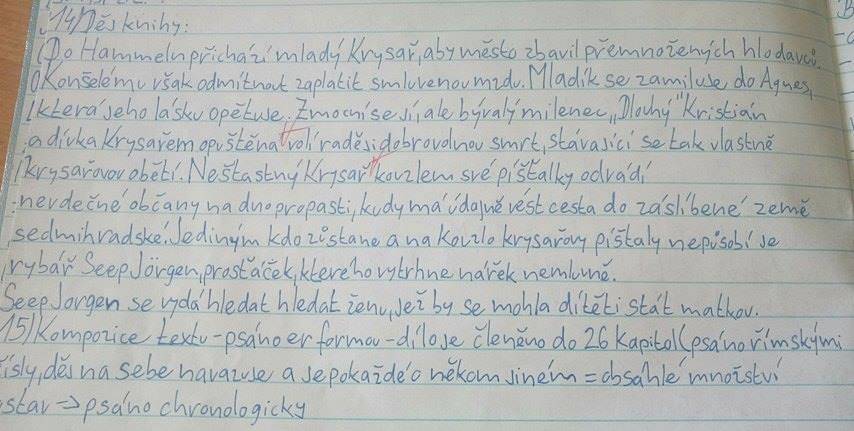 14) Děs knihy:
(Do Hammeln přichází mladý Krysař, aby město zbavil přemnožených hlodavců.
Konšelému však odmítnout zaplatit smluvenou mzdu. Mladík se zamiluje do Agnes,
která jeho lásku opětuje. Zmocní se jí, ale bývalý milenec "Dlouhý" Kristián
a dívka Krysařem opuštěna volí raději dobrovolnou smrt, stávající se tak vlastně
krysařovou obětí. Nešťastný Krysař kouzlem své píšťalky odvádí
nevděčné občany na dno propasti, kudy má údajně vést cesta do zaslíbené země
sedmihradské. Jediným kdo zůstane a na kouzlo krysařovy píšťaly nepůsobí je
rybář Seep Jörgen, prosťáček, kterého vytrhne nářek nemluvně.
Seep Jorgen se vydá hledat hledat ženu, jež by se mohla dítěti stát matkou.
15) Kompozice textu - psáno er formou - dílo je členěno do 26 kapitol (psáno římskými
ísly, děs na sebe navazuje a je pokaždé o někom jiném = obsáhlé množství
stav => psáno chronologicky